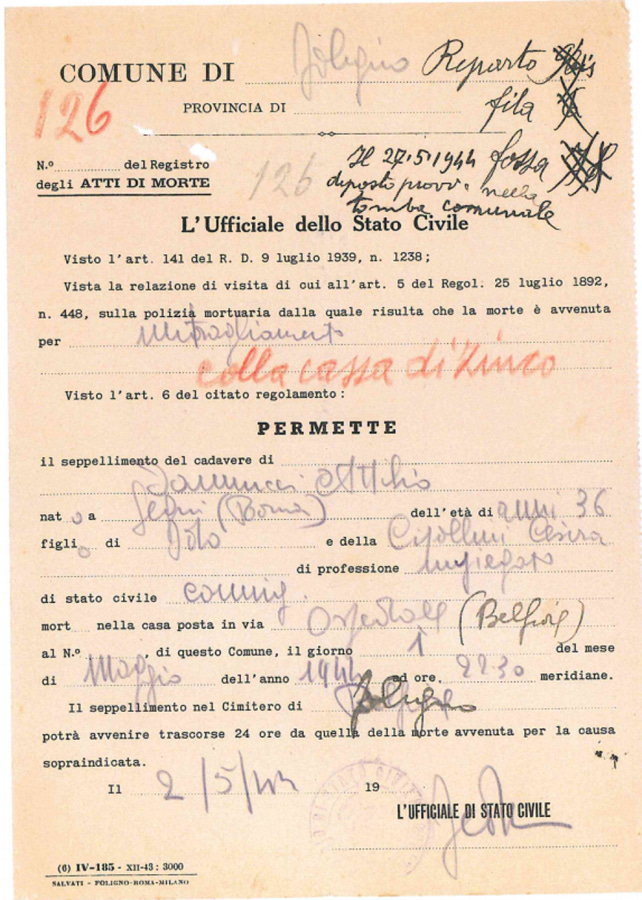 COMUNE DI Foligno Reparto
PROVINCIA DI fila
126
N.º del Registro 126
degli ATTI DI MORTE
Il 27.5.1944 fossa
deposto provv. nella
tomba comunale
L'Ufficiale dello Stato Civile
Visto l'art. 141 del R. D. 9 luglio 1939, n. 1238;
Vista la relazione di visita di cui all'art. 5 del Regol. 25 luglio 1892,
n. 448, sulla polizia mortuaria dalla quale risulta che la morte è avvenuta
per Mitragliamento
colla cassa di zinco
Visto l'art. 6 del citato regolamento:
PERMETTE
il seppellimento del cadavere di
Attilio
nato a Segni (Roma) dell'età di anni 36
figlio di e della Cipollini Cesira
di professione impiegato
di stato civile coniug.
mort nella casa posta in via Ospedale (Belfiore)
al N.º , di questo Comune, il giorno 1 del mese
di Maggio dell'anno 1944 ad ore. 2230 meridiane.
Il seppellimento nel Cimitero di Foligno
potrà avvenire trascorse 24 ore da quella della morte avvenuta per la causa
sopraindicata.
Il 2/5/44 19
L'UFFICIALE DI STATO CIVILE
(6) IV-185 - XII-43 : 3000
SALVATI - FOLIGNO-ROMA-MILANO